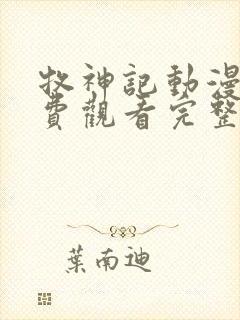 牧神記動漫
費觀看完整
葉南迪